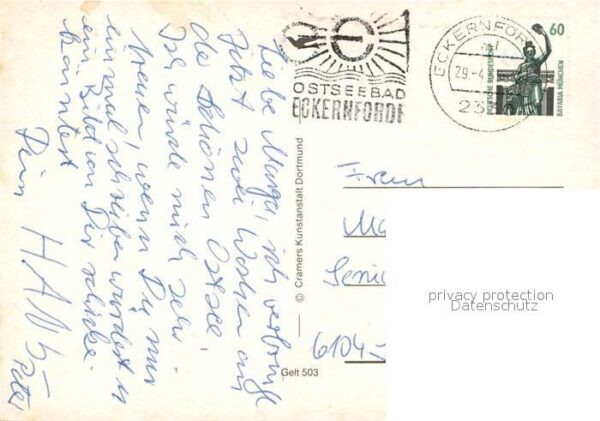 Liebe Marga, ich verbringe
Jetzt zwei Wochen an
der schönen Ostsee.
Ich würde mich sehr
freuen, wenn Du mir
ein mal schreiben würdest u
ein Bild von Dir schicke.
Dein HANS
Peter
OSTSEEBAD
ECKERNFÖRDE
ECKERNFÖR
29.-4
23
60
DEUTSCHE BUNDESPOST
BAVARIA MÜNCHEN
© Cramers Kunstanstalt Dortmund
Gelt 503
Frau
Ma
Seni
6104
privacy protection
Datenschutz